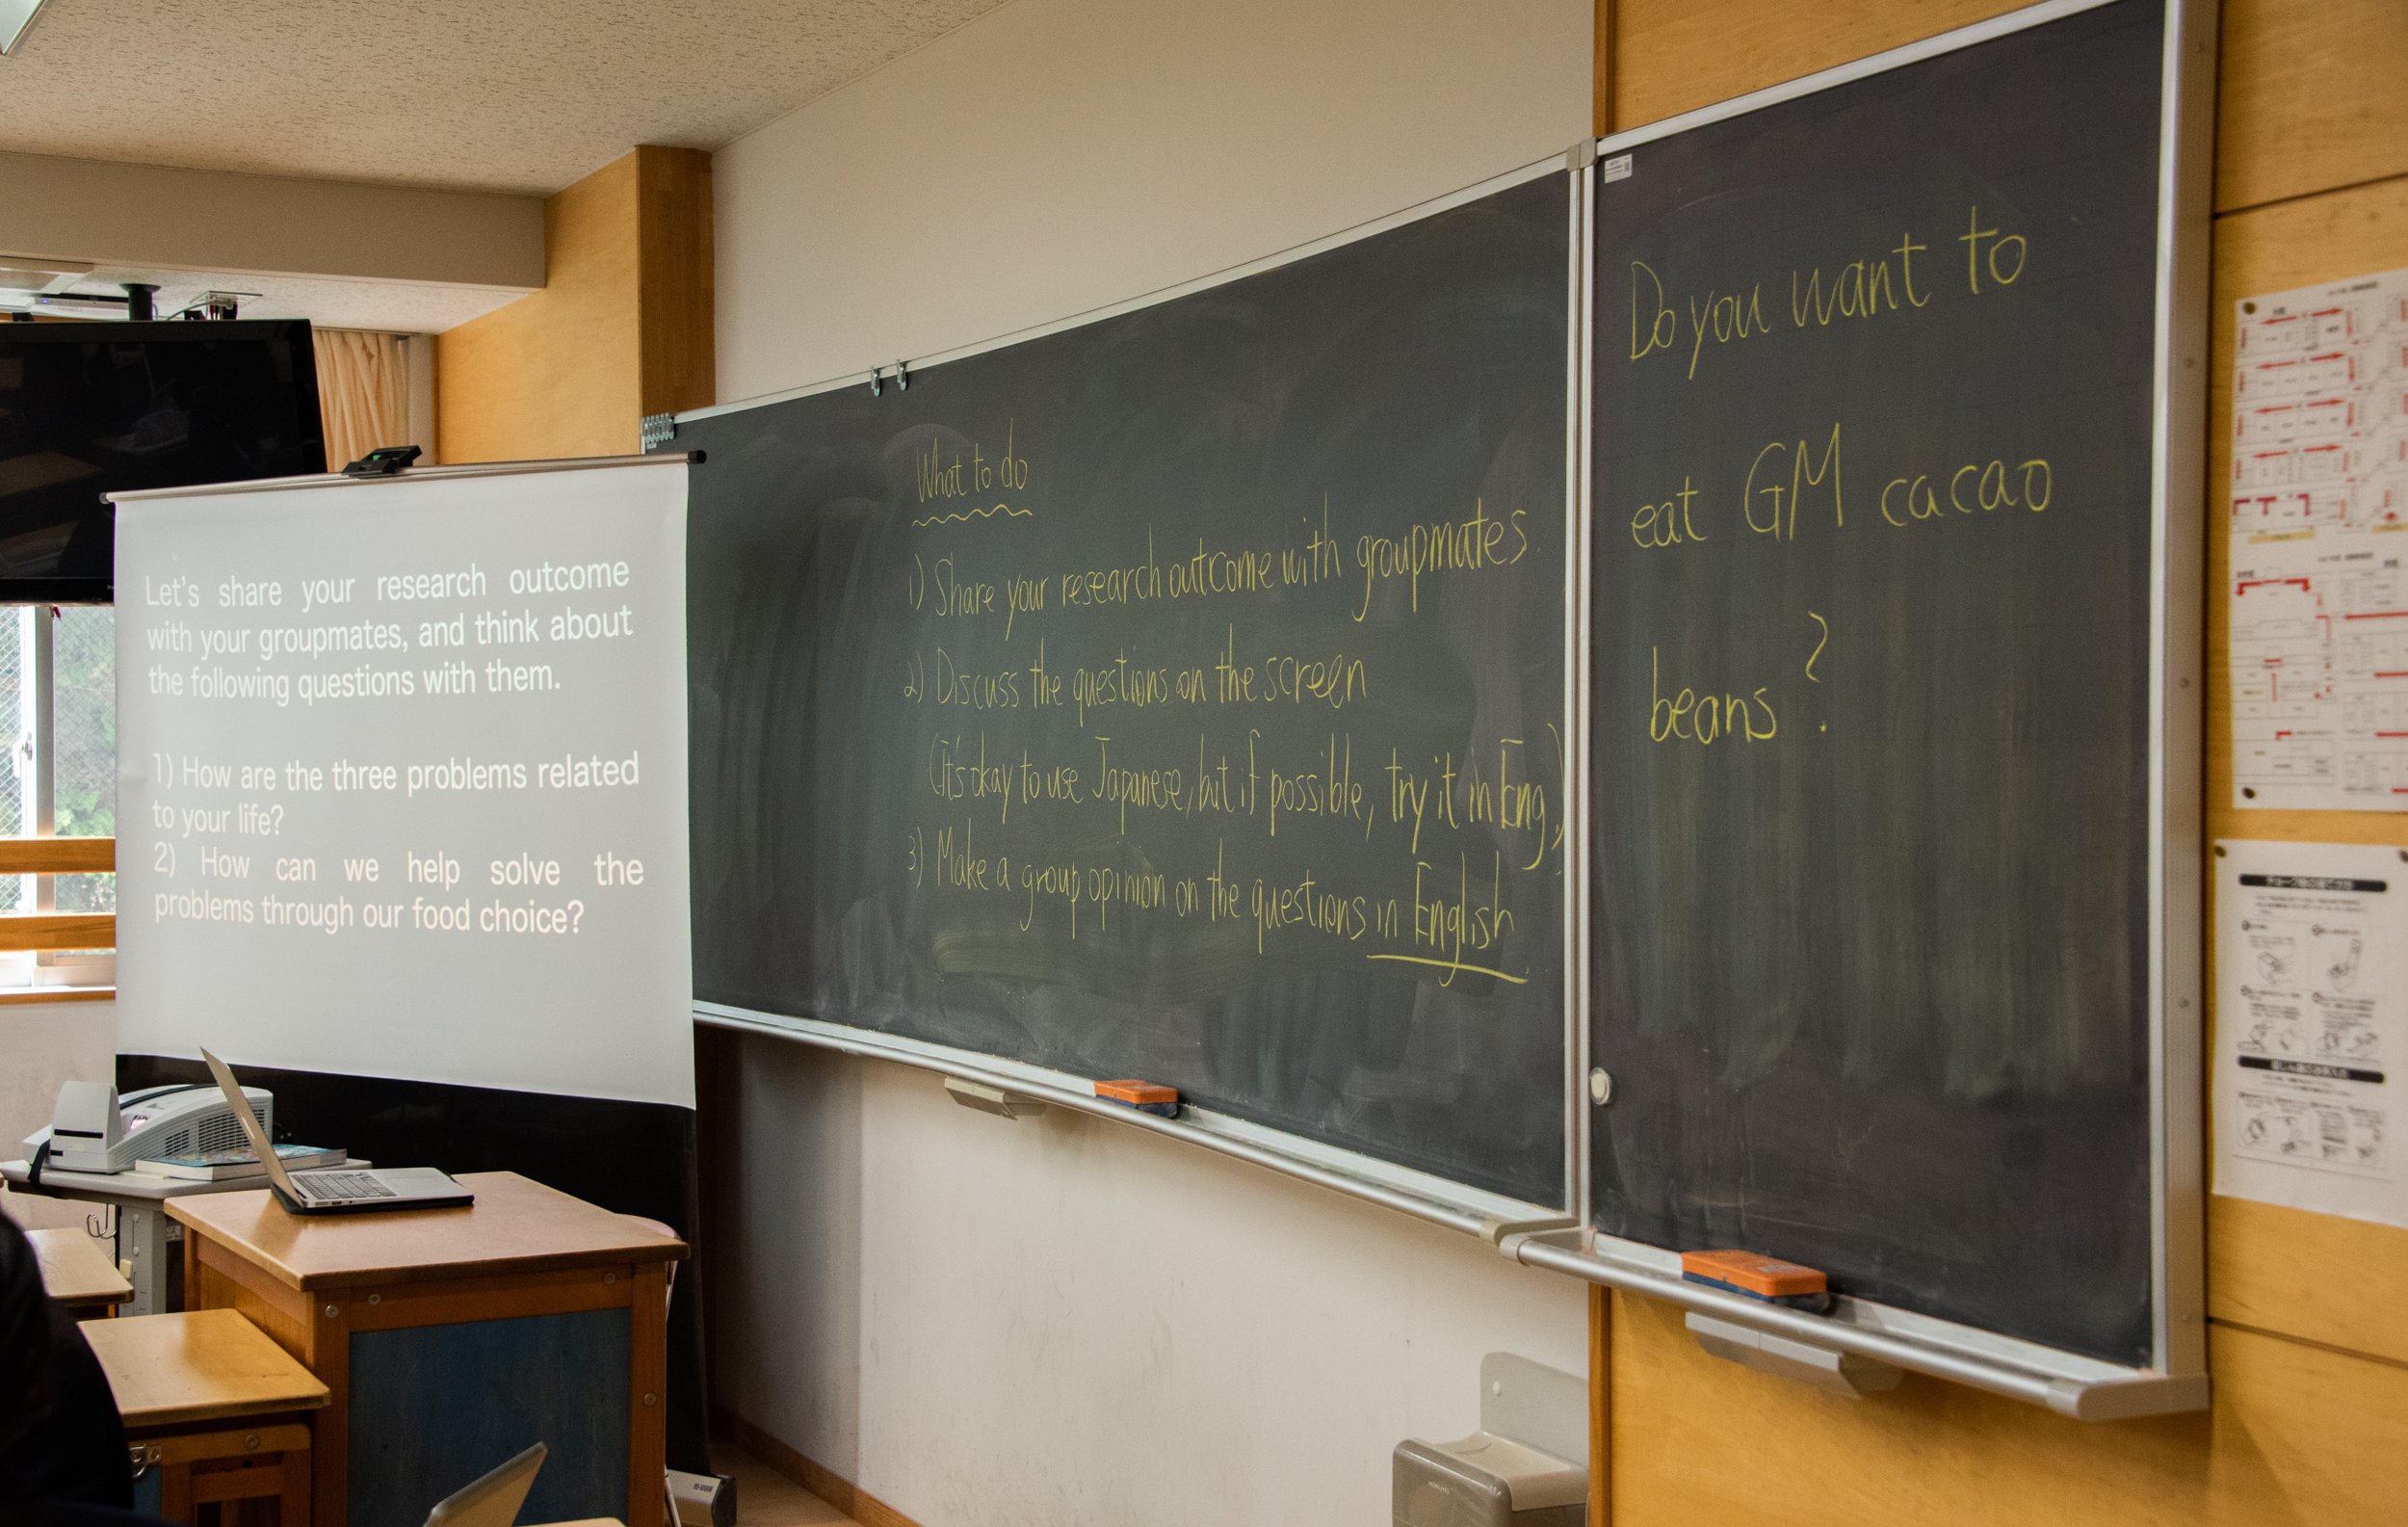 Let's share your research outcome
with your groupmates, and think about
the following questions with them.
1) How are the three problems related
to your life?
2) How can we help solve the
problems through our food choice?
What to do
1) Share your research outcome with groupmates.
2) Discuss the questions on the screen
(It's okay to use Japanese, but if possible, try it in Eng.)
3) Make a group opinion on the questions in English
Do you want to
eat GM cacao
beans?